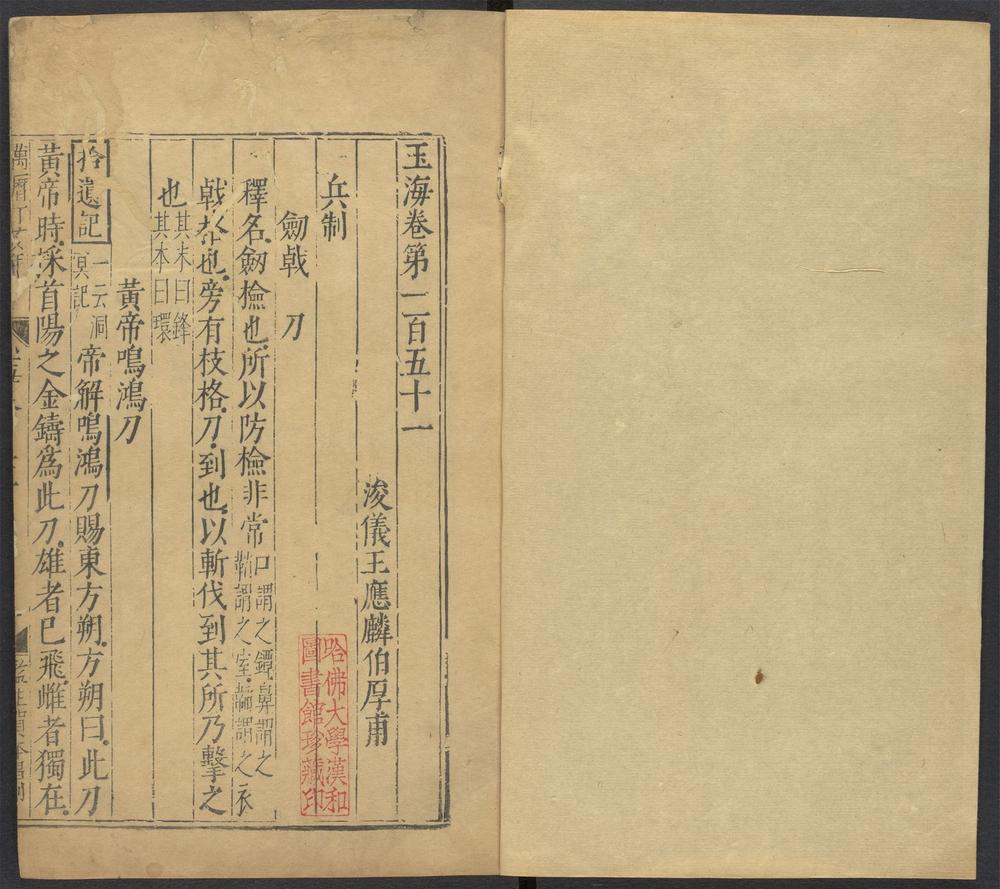 玉海卷第二百五十一
浚儀王應麟伯厚甫
兵制
劒戟　刀
釋名劒檢也所以防檢非常口謂之鐔鼻謂之
鞘謂之室　謂之衣
戟　也旁有枝格刀到也以斬伐到其所乃擊之
也其末曰鋒
其本曰環
黃帝鳴鴻刀
拾遺記一云洞
冥記帝解鳴鴻刀賜東方朔方朔曰此刀
黃帝時採首陽之金鑄爲此刀雄者已飛雌者獨在
萬曆
哈佛大學漢和
圖書館珍藏印